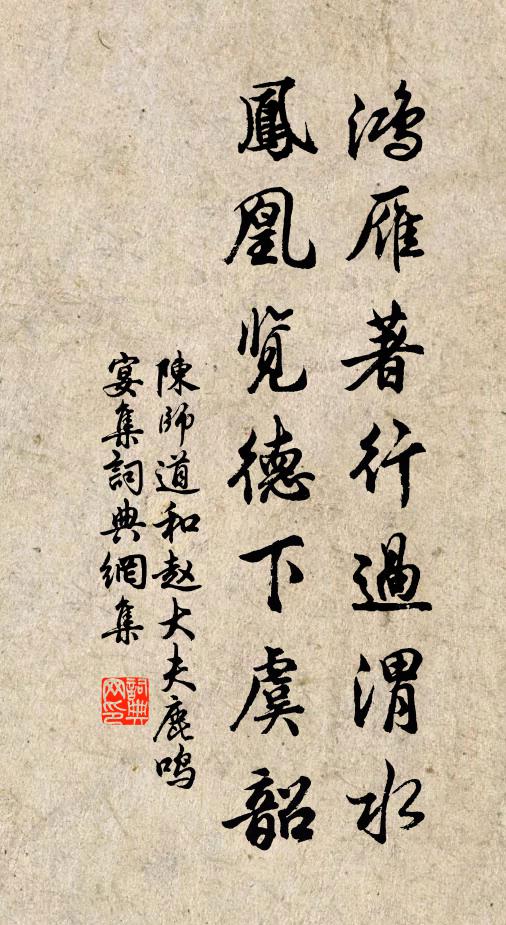 鸿雁著行過渭水
鳳凰览德下虞韶
陳師道和赵大夫鹿鸣
宴集詞典網集
詞典
网印